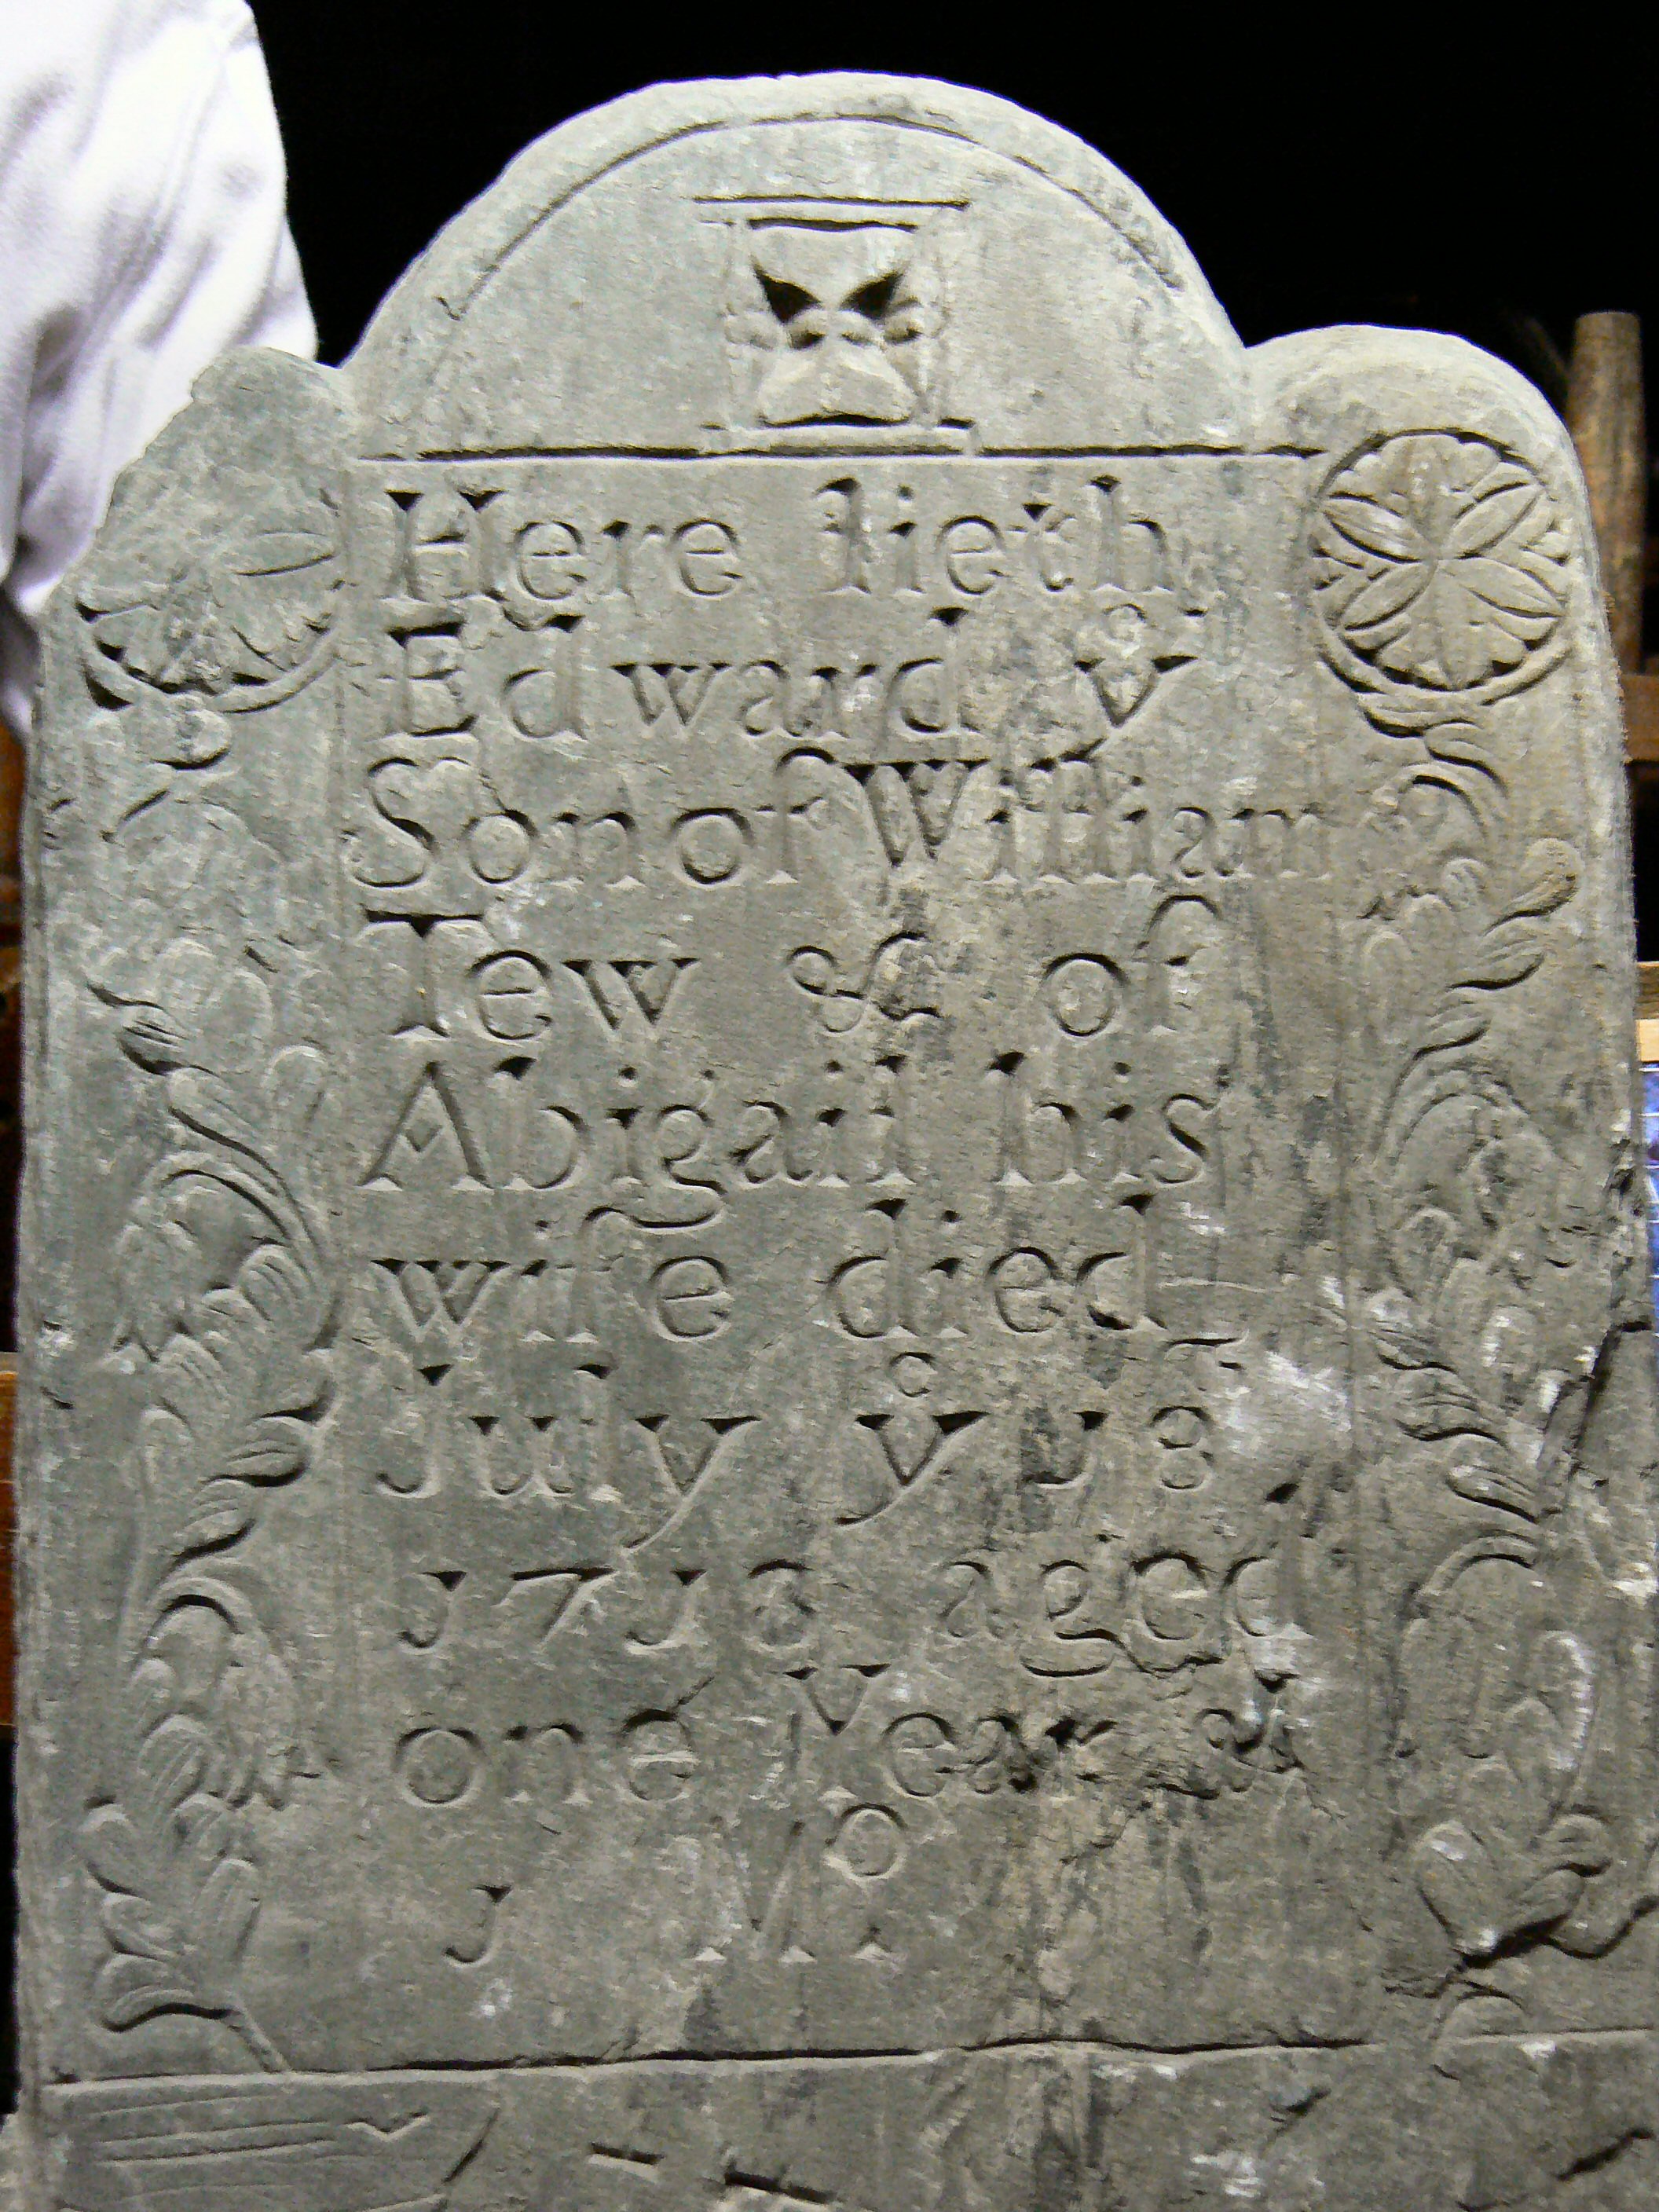 Here lieth
Edward yᵉ
Son of William
Tew & of
Abigail his
wife died
July yᵉ 13
1713 aged
one Year &
1 Mᵒ